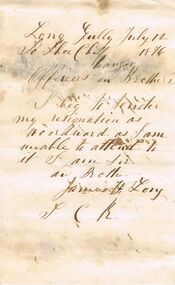 Long Gully July 12
To The Chief 1876
Ranger
Officers and Brothers
I beg to tender
my resignation as
Woodward as I am
unable to attend to
it I am Sir
Broth
James H Long